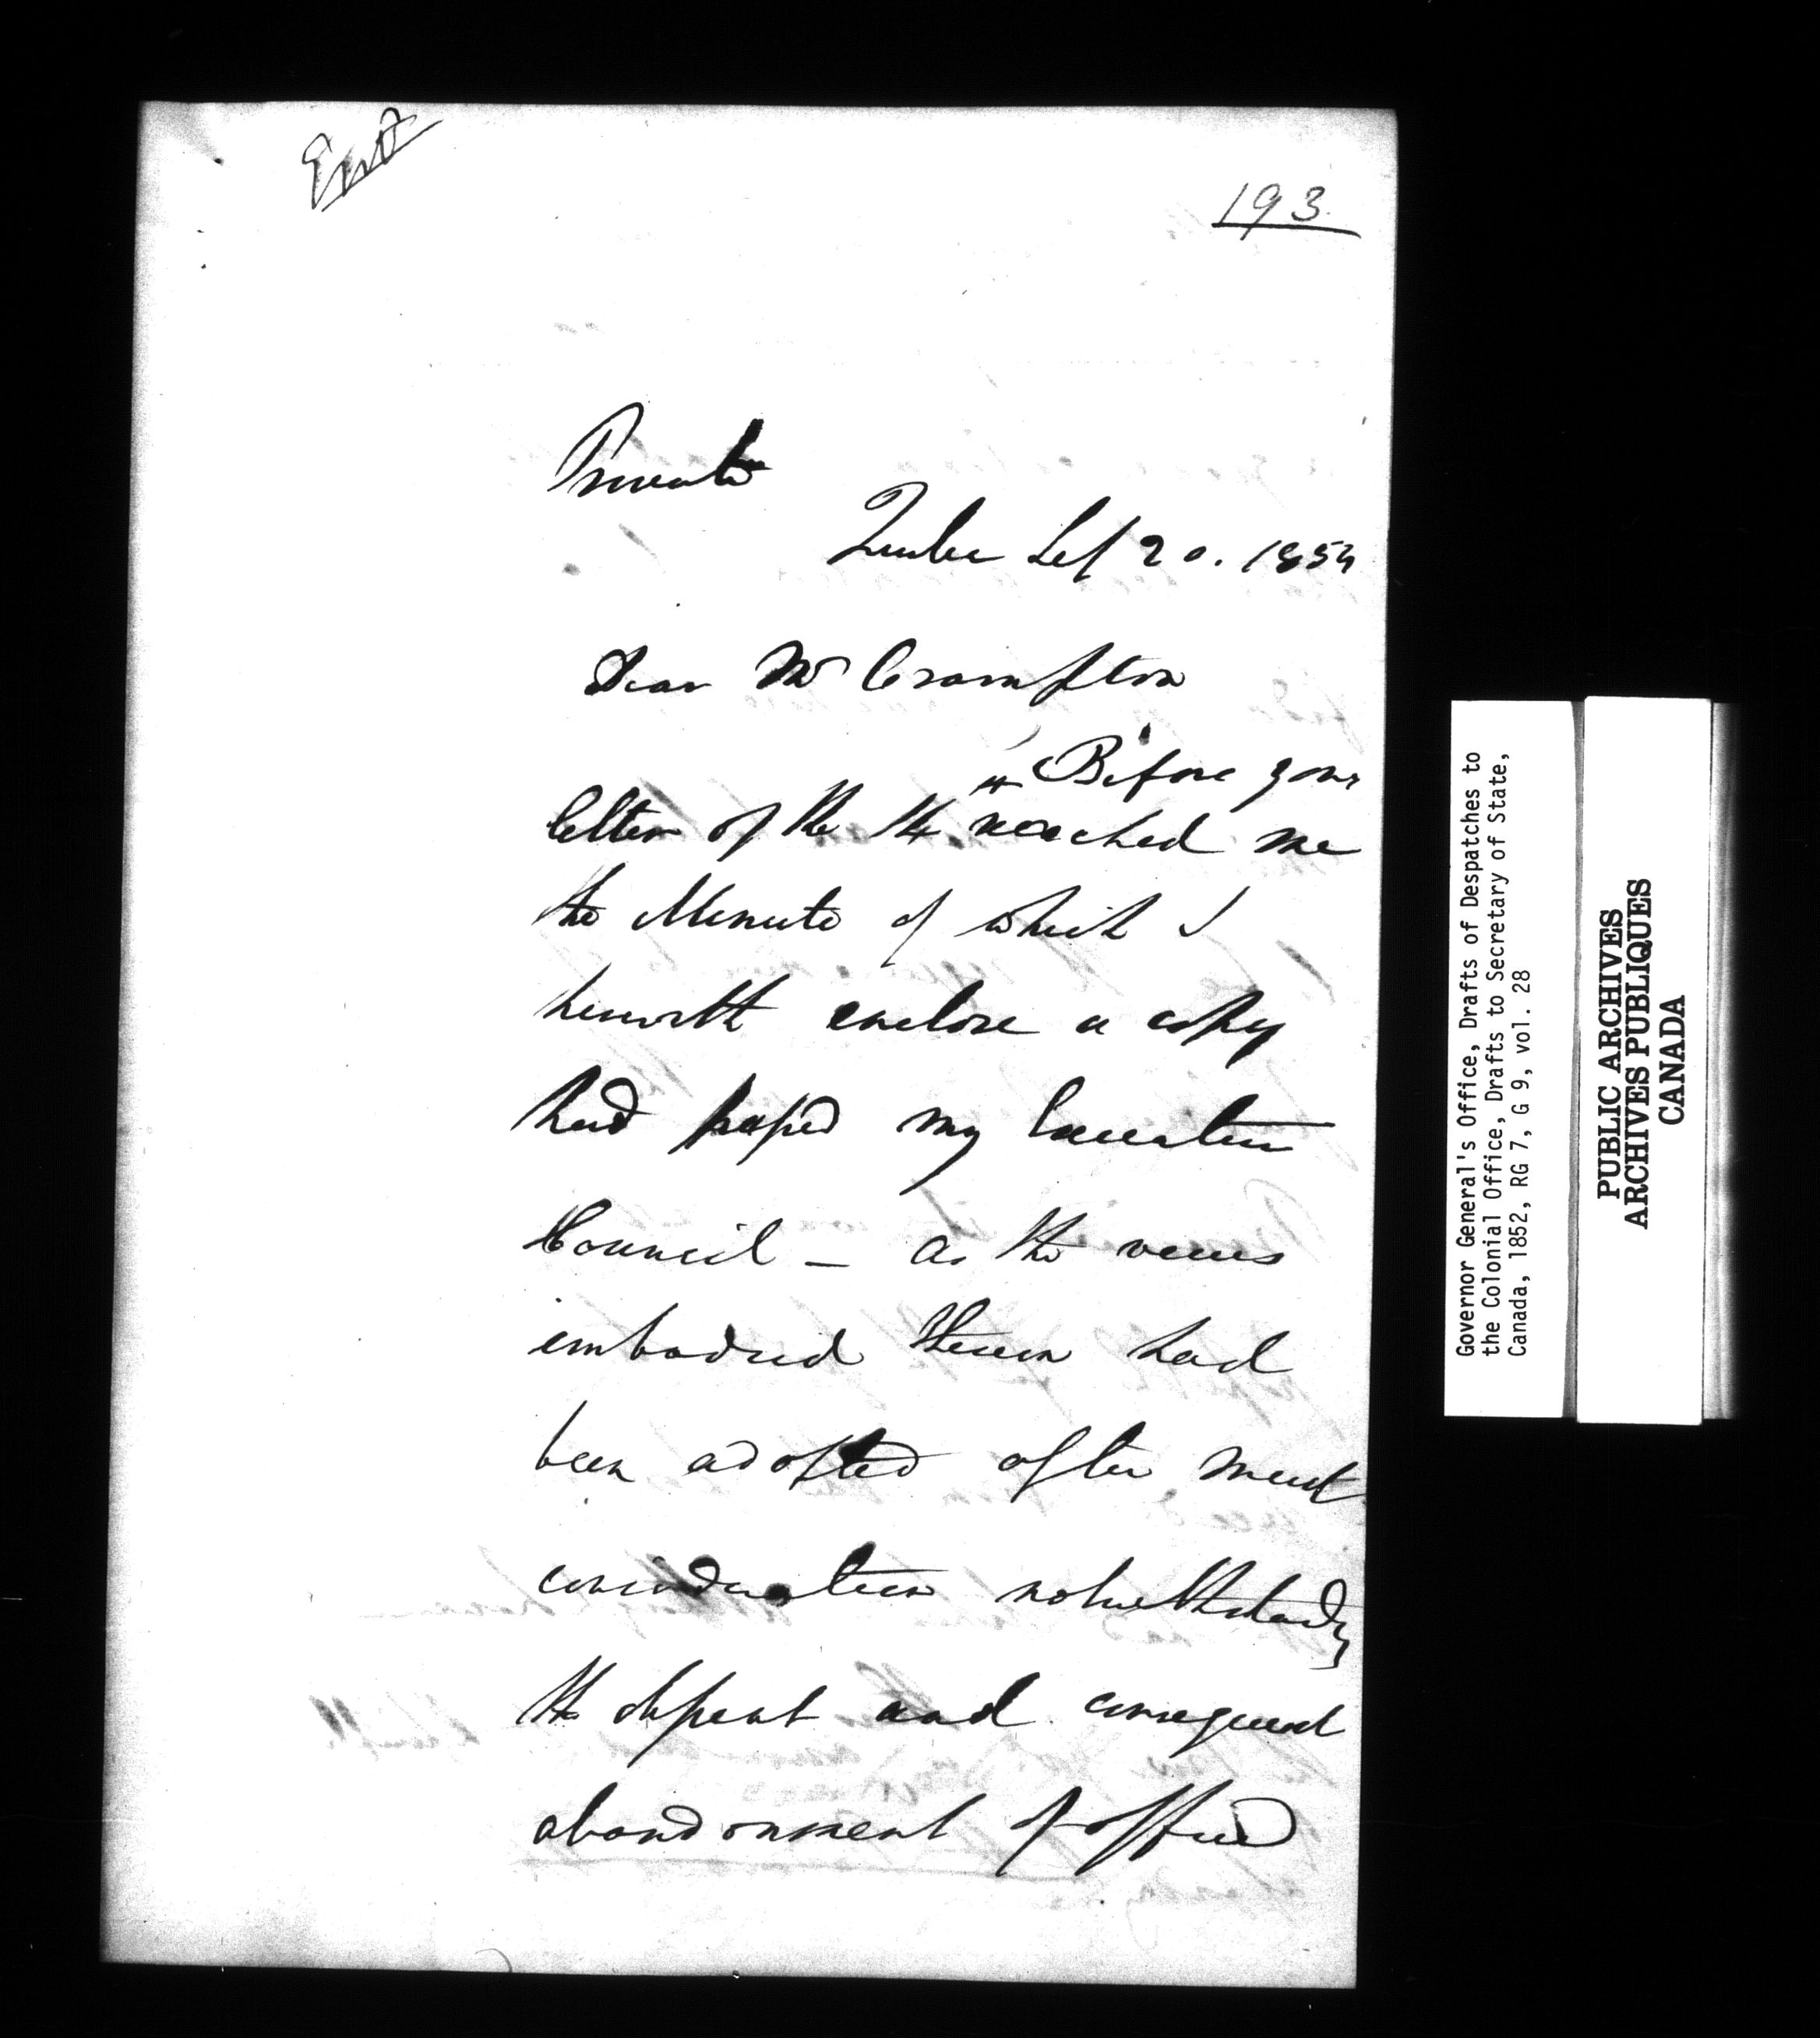 Ent
193
Private
Quebec Sep 20. 1854
Dear Mr Crampton
Before your
letter of the 14th reached me
the Minute of which I
herewith enclose a copy
had passed my Executive
Council – as the views
embodied therein had
been adopted after much
consideration notwithstandg
the dissent and consequent
abandonment of office
Governor General's Office, Drafts of Despatches to
the Colonial Office, Drafts to Secretary of State,
Canada, 1852, RG 7, G 9, vol. 28
PUBLIC ARCHIVES
ARCHIVES PUBLIQUES
CANADA